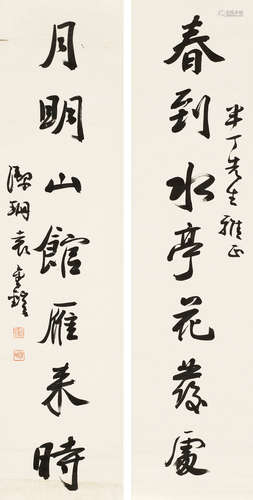 春到水亭花發處
半丁先生雅正
月明山館雁来時
潔珊袁金鎧